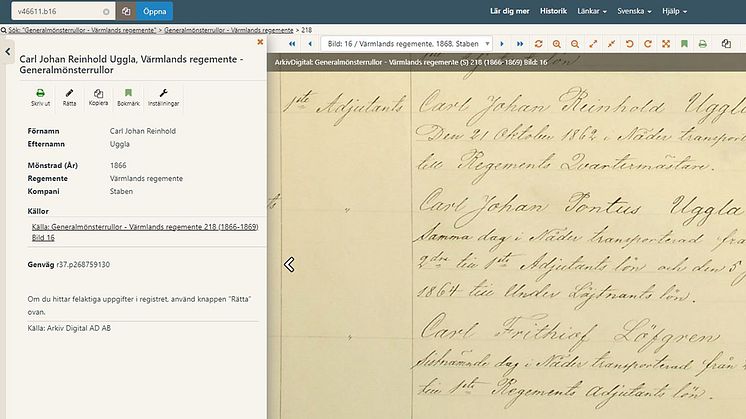 v46611.b16
Öppna
Lär dig mer
Historik
Länkar
Svenska
Hjälp
Sök: "Generalmönsterrullor - Värmlands regemente" > Generalmönsterrullor - Värmlands regemente > 218
Bild: 16 / Värmlands regemente, 1868, Staben
ArkivDigital: Generalmönsterrullor - Värmlands regemente (S) 218 (1866-1869) Bild: 16
Carl Johan Reinhold Uggla, Värmlands regemente -
Generalmönsterrullor
Skriv ut
Rätta
Kopiera
Bokmärk
Inställningar
Förnamn Carl Johan Reinhold
Efternamn Uggla
Mönstrad (År) 1866
Regemente Värmlands regemente
Kompani Staben
Källor
Källa: Generalmönsterrullor - Värmlands regemente 218 (1866-1869)
Bild 16
Genväg r37.p268759130
Om du hittar felaktiga uppgifter i registret, använd knappen "Rätta"
ovan.
Källa: Arkiv Digital AD AB
1ste Adjutants
Carl Johan Reinhold Uggla
Den 21 Oktober 1862 i Nåder transpor
till Regements Qvartermästare.
"
Carl Johan Pontus Uggla
Samma dag i Nåder transporterad frå
2dra till 1ste Adjutants lön och den 5 j
1864 till Under Löjtnants lön.
"
Carl Frithiof Löfgren
Sistnämnde dag i Nåder transporterad från
till 1ste Regements Adjutants lön.